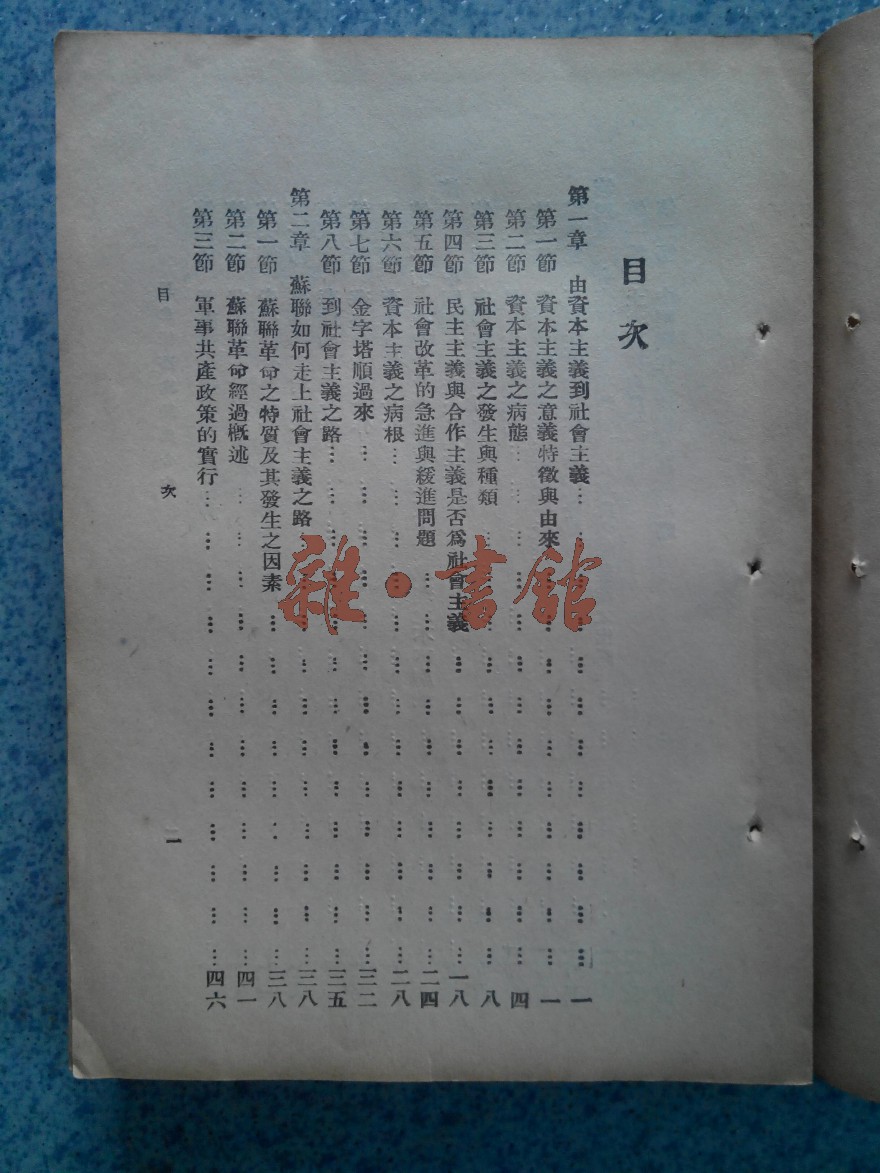 目次
第一章 由資本主義到社會主義……一
第一節 資本主義之意義特徵與由來……一
第二節 資本主義之病態……四
第三節 社會主義之發生與種類……八
第四節 民主主義與合作主義是否為社會主義……一八
第五節 社會改革的急進與緩進問題……二四
第六節 資本主義之病根……二八
第七節 金字塔順過來……三二
第八節 到社會主義之路……三五
第二章 蘇聯如何走上社會主義之路……三八
第一節 蘇聯革命之特質及其發生之因素……三八
第二節 蘇聯革命經過概述……四一
第三節 軍事共產政策的實行……四六
目次 一
雜·書館